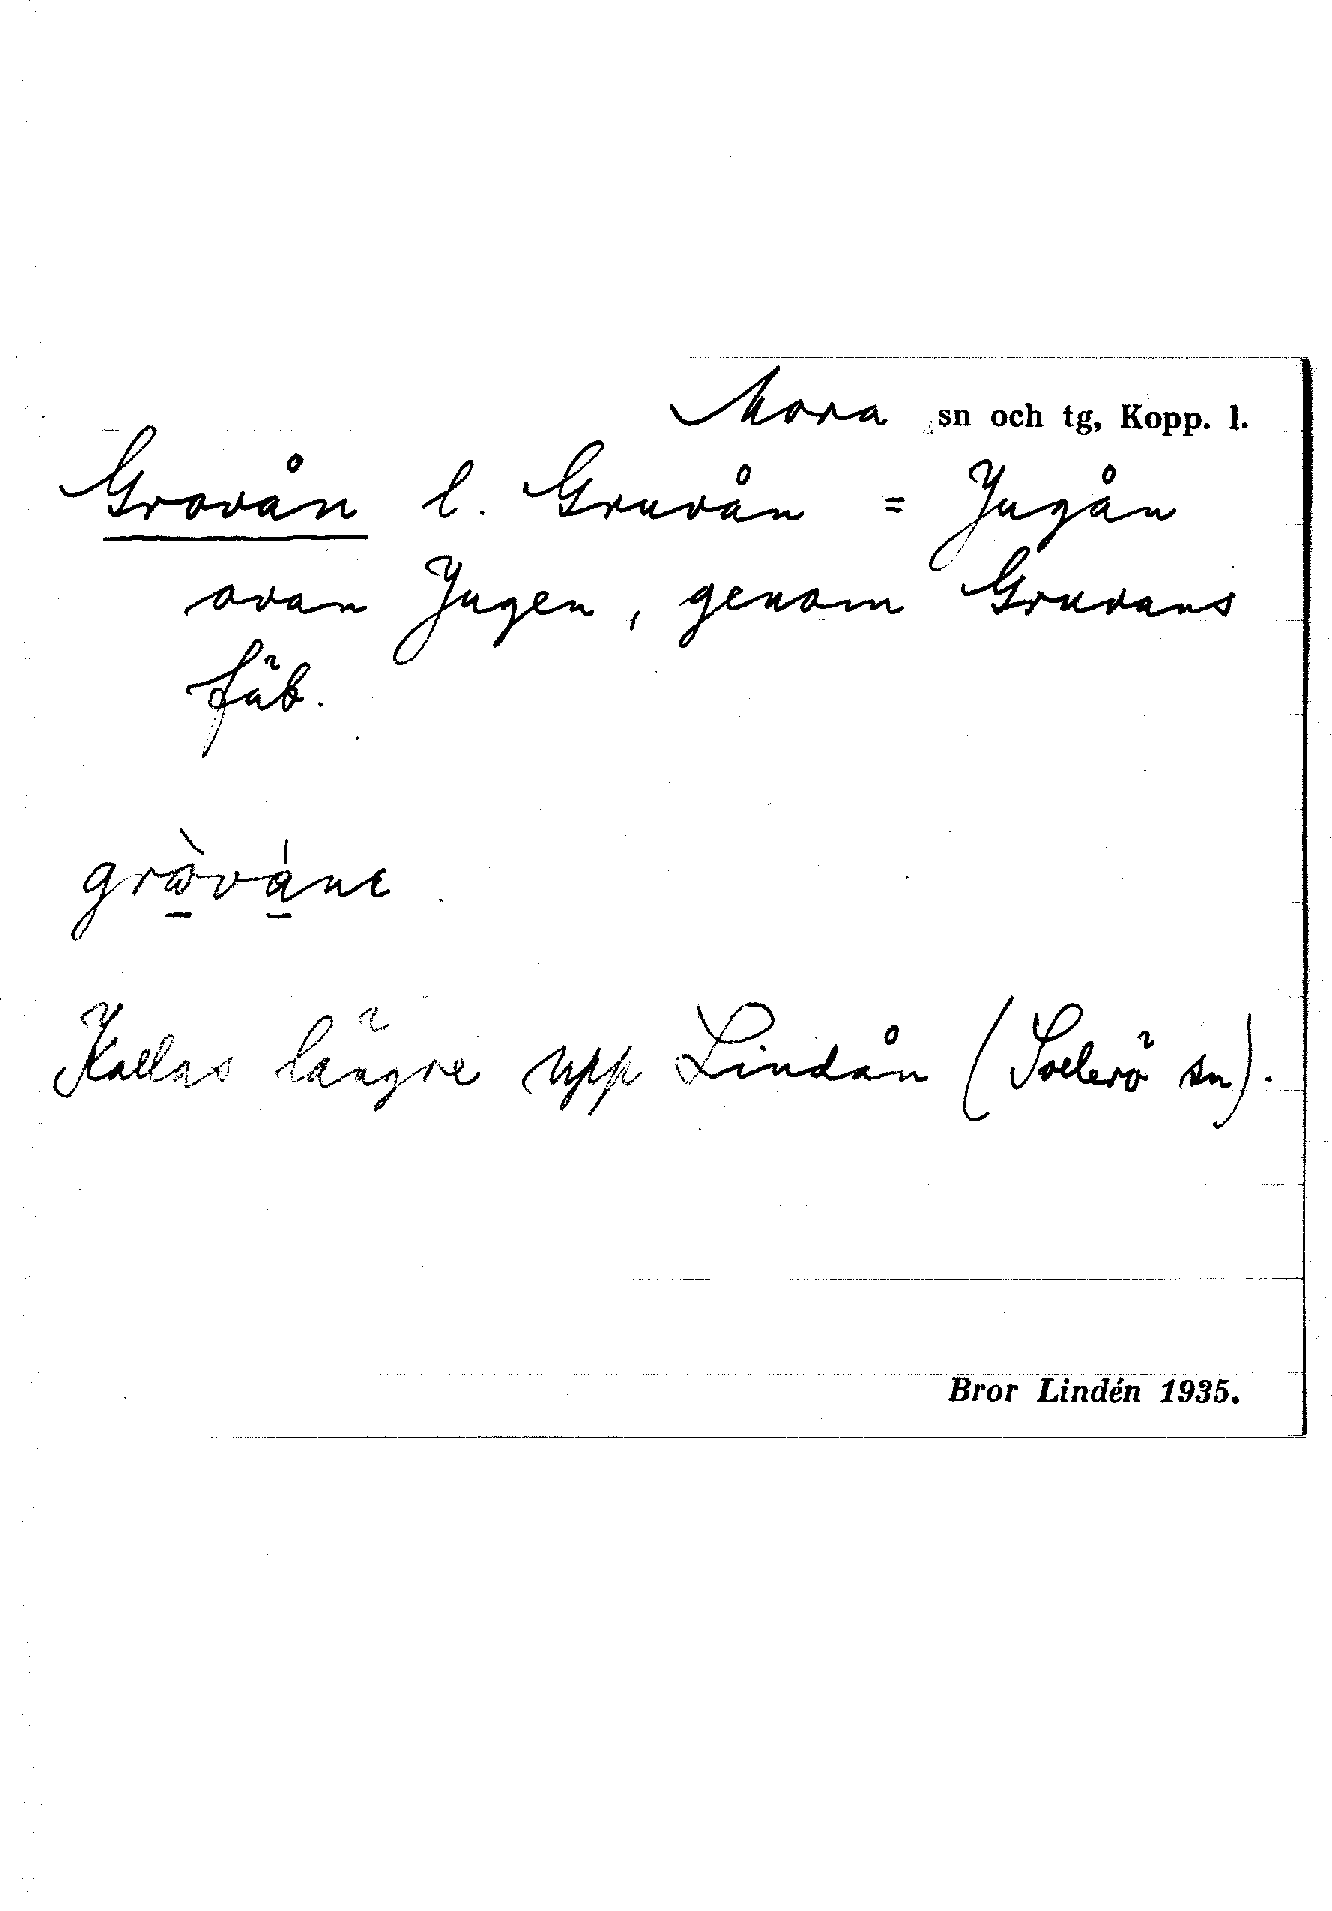 Mora sn och tg, Kopp. l.
Grovån l. Gruvån = Jugån
ovan Jugen, genom Gruvans
fäb.
Kallas längre upp Lindån (Sollerö sn).
Bror Lindén 1935.